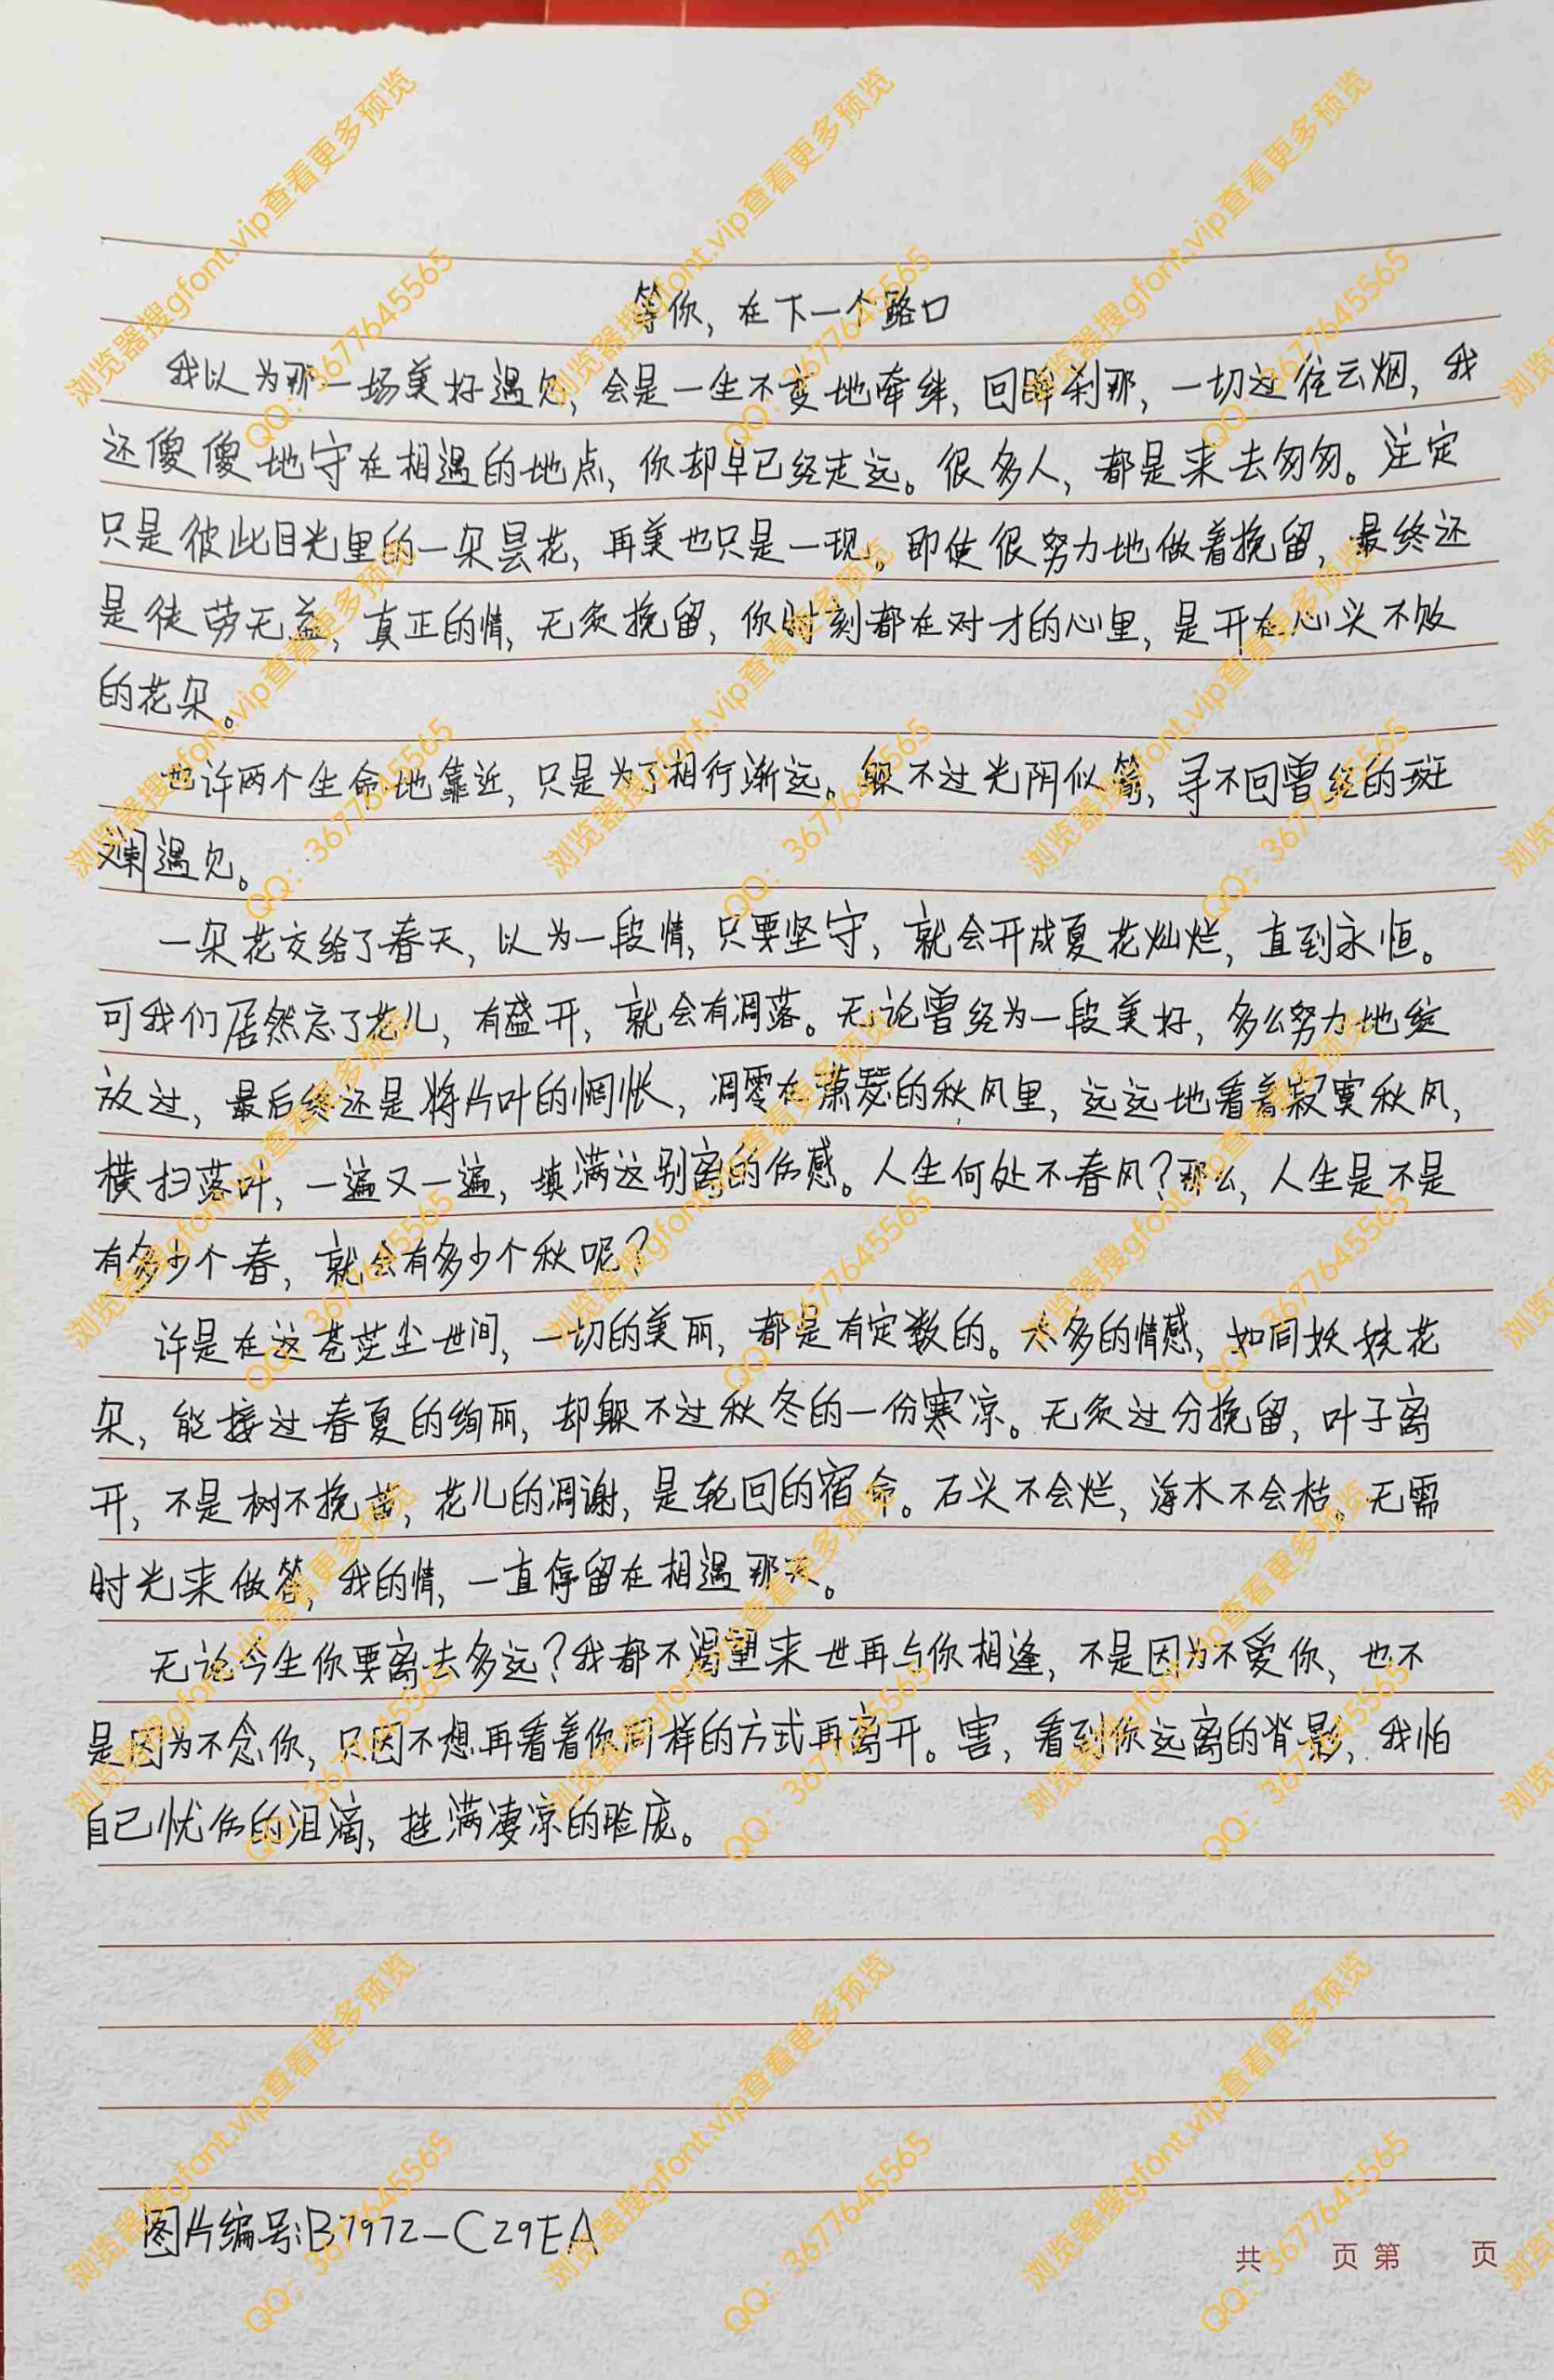 等你，在下一个路口
我以为那一场美好遇见，会是一生不变地牵绊，回眸刹那，一切过往云烟，我
还傻傻地守在相遇的地点，你却早已经走远。很多人，都是来去匆匆。注定
只是彼此目光里的一朵昙花，再美也只是一现。即使很努力地做着挽留，最终还
是徒劳无益，真正的情，无须挽留，你时刻都在对才的心里，是开在心头不败
的花朵。
也许两个生命地靠近，只是为了相行渐远。躲不过光阴似箭，寻不回曾经的斑
斓遇见。
一朵花交给了春天，以为一段情，只要坚守，就会开成夏花灿烂，直到永恒。
可我们居然忘了花儿，有盛开，就会有凋落。无论曾经为一段美好，多么努力地绽
放过，最后终还是将片叶的惆怅，凋零在萧瑟的秋风里，远远地看着寂寞秋风，
横扫落叶，一遍又一遍，填满这别离的伤感。人生何处不春风？那么，人生是不是
有多少个春，就会有多少个秋呢？
许是在这苍茫尘世间，一切的美丽，都是有定数的。太多的情感，如同妖娆花
朵，能接过春夏的绚丽，却躲不过秋冬的一份寒凉。无须过分挽留，叶子离
开，不是树不挽留，花儿的凋谢，是轮回的宿命。石头不会烂，海水不会枯，无需
时光来做答，我的情，一直停留在相遇那天。
无论今生你要离去多远？我都不渴望来世再与你相逢，不是因为不爱你，也不
是因为不念你，只因不想再看着你同样的方式再离开。害，看到你远离的背影，我怕
自己忧伤的泪滴，挂满凄凉的脸庞。
图片编号:B7972-C29EA
共 页 第 页
浏览器搜gfont.vip查看更多预览
QQ：3677645565